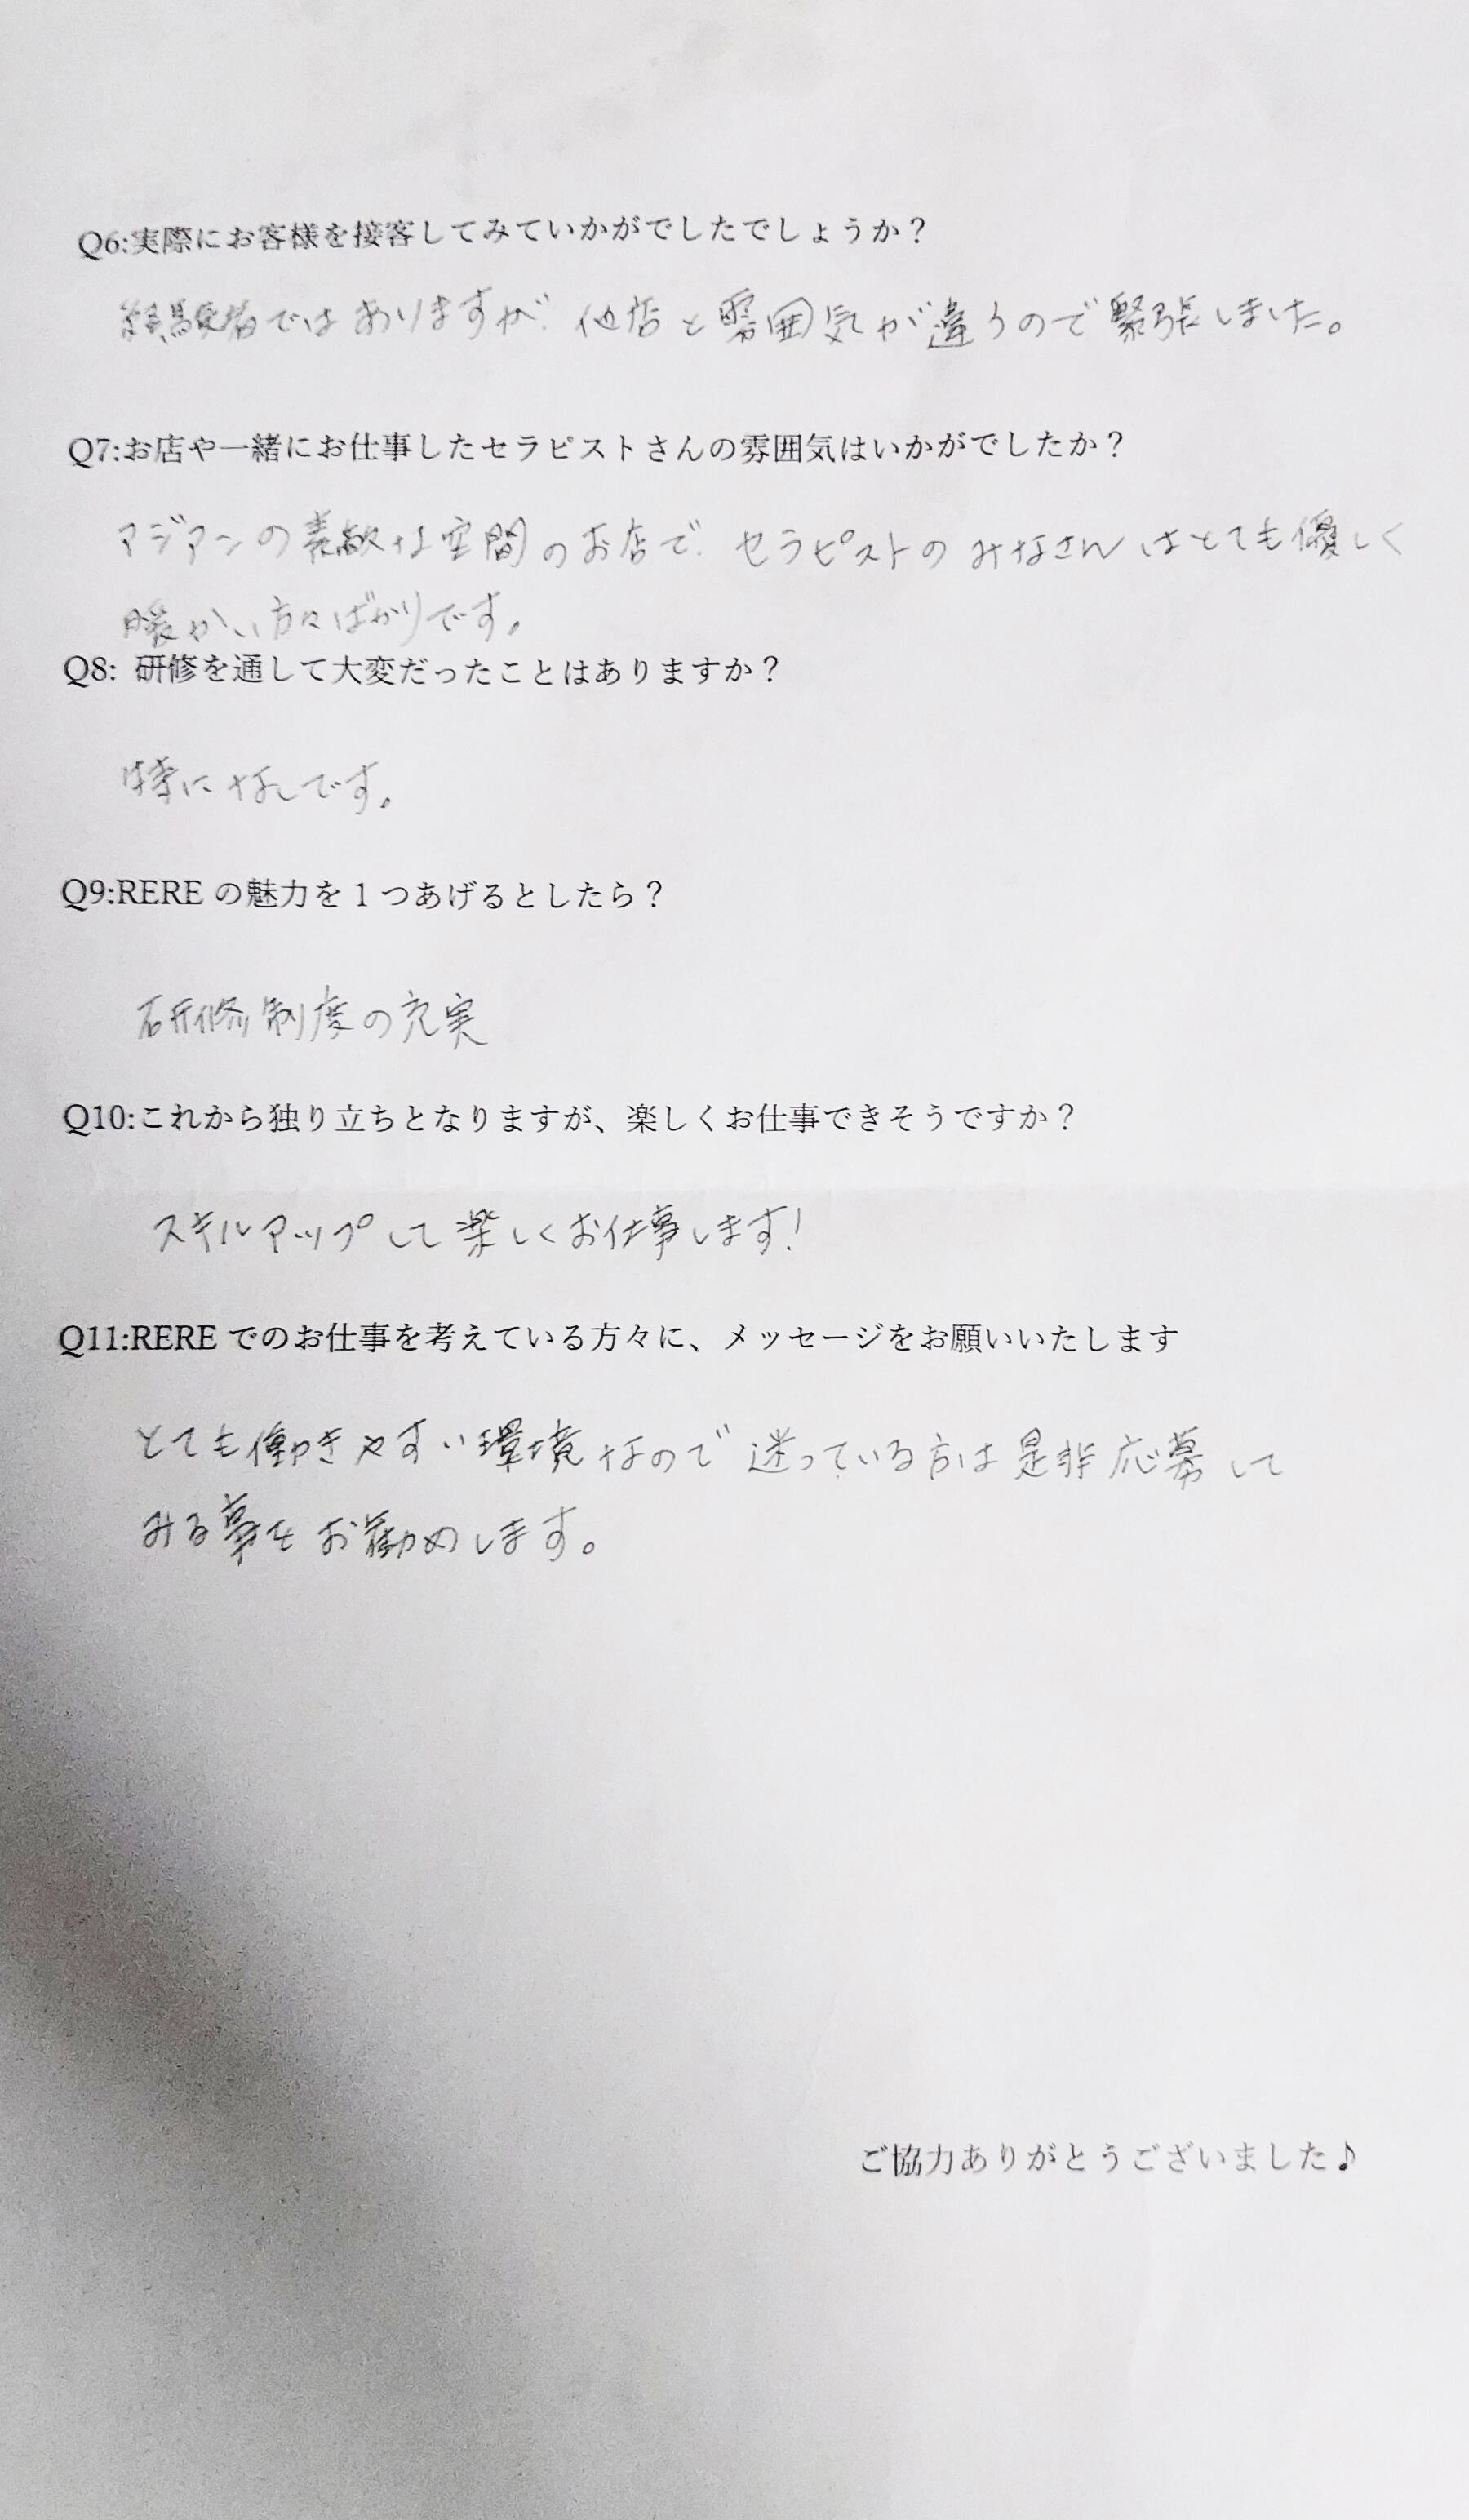 Q6:実際にお客様を接客してみていかがでしたでしょうか？
経験者ではありますが、他店と雰囲気が違うので緊張しました。
Q7:お店や一緒にお仕事したセラピストさんの雰囲気はいかがでしたか？
アジアンの素敵な空間のお店で、セラピストのみなさんはとても優しく
暖かい方々ばかりです。
Q8: 研修を通して大変だったことはありますか？
特になしです。
Q9:RERE の魅力を 1 つあげるとしたら？
研修制度の充実
Q10:これから独り立ちとなりますが、楽しくお仕事できそうですか？
スキルアップして楽しくお仕事します!
Q11:RERE でのお仕事を考えている方々に、メッセージをお願いいたします
とても働きやすい環境なので迷っている方は是非応募して
みる事をお勧めします。
ご協力ありがとうございました♪